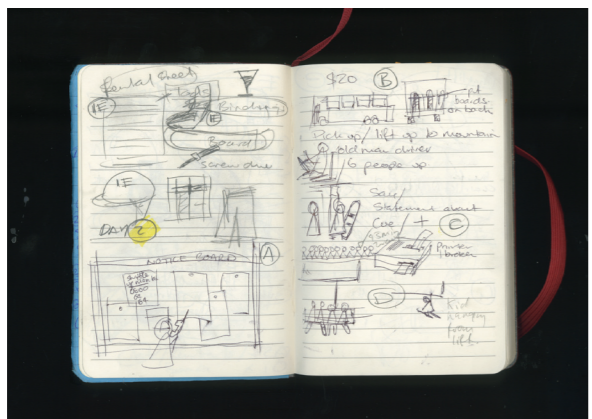 Rental Street
IE
Board
screw driver
IE
DAY 2
A
NOTICE BOARD
$20 B
pt
boards
on back
Pick up / lift up to mountain
old man driver
6 people up
Sale/
Statement about
Coe / + C
Printer
broken
D
Kid
hanging
from
lift.